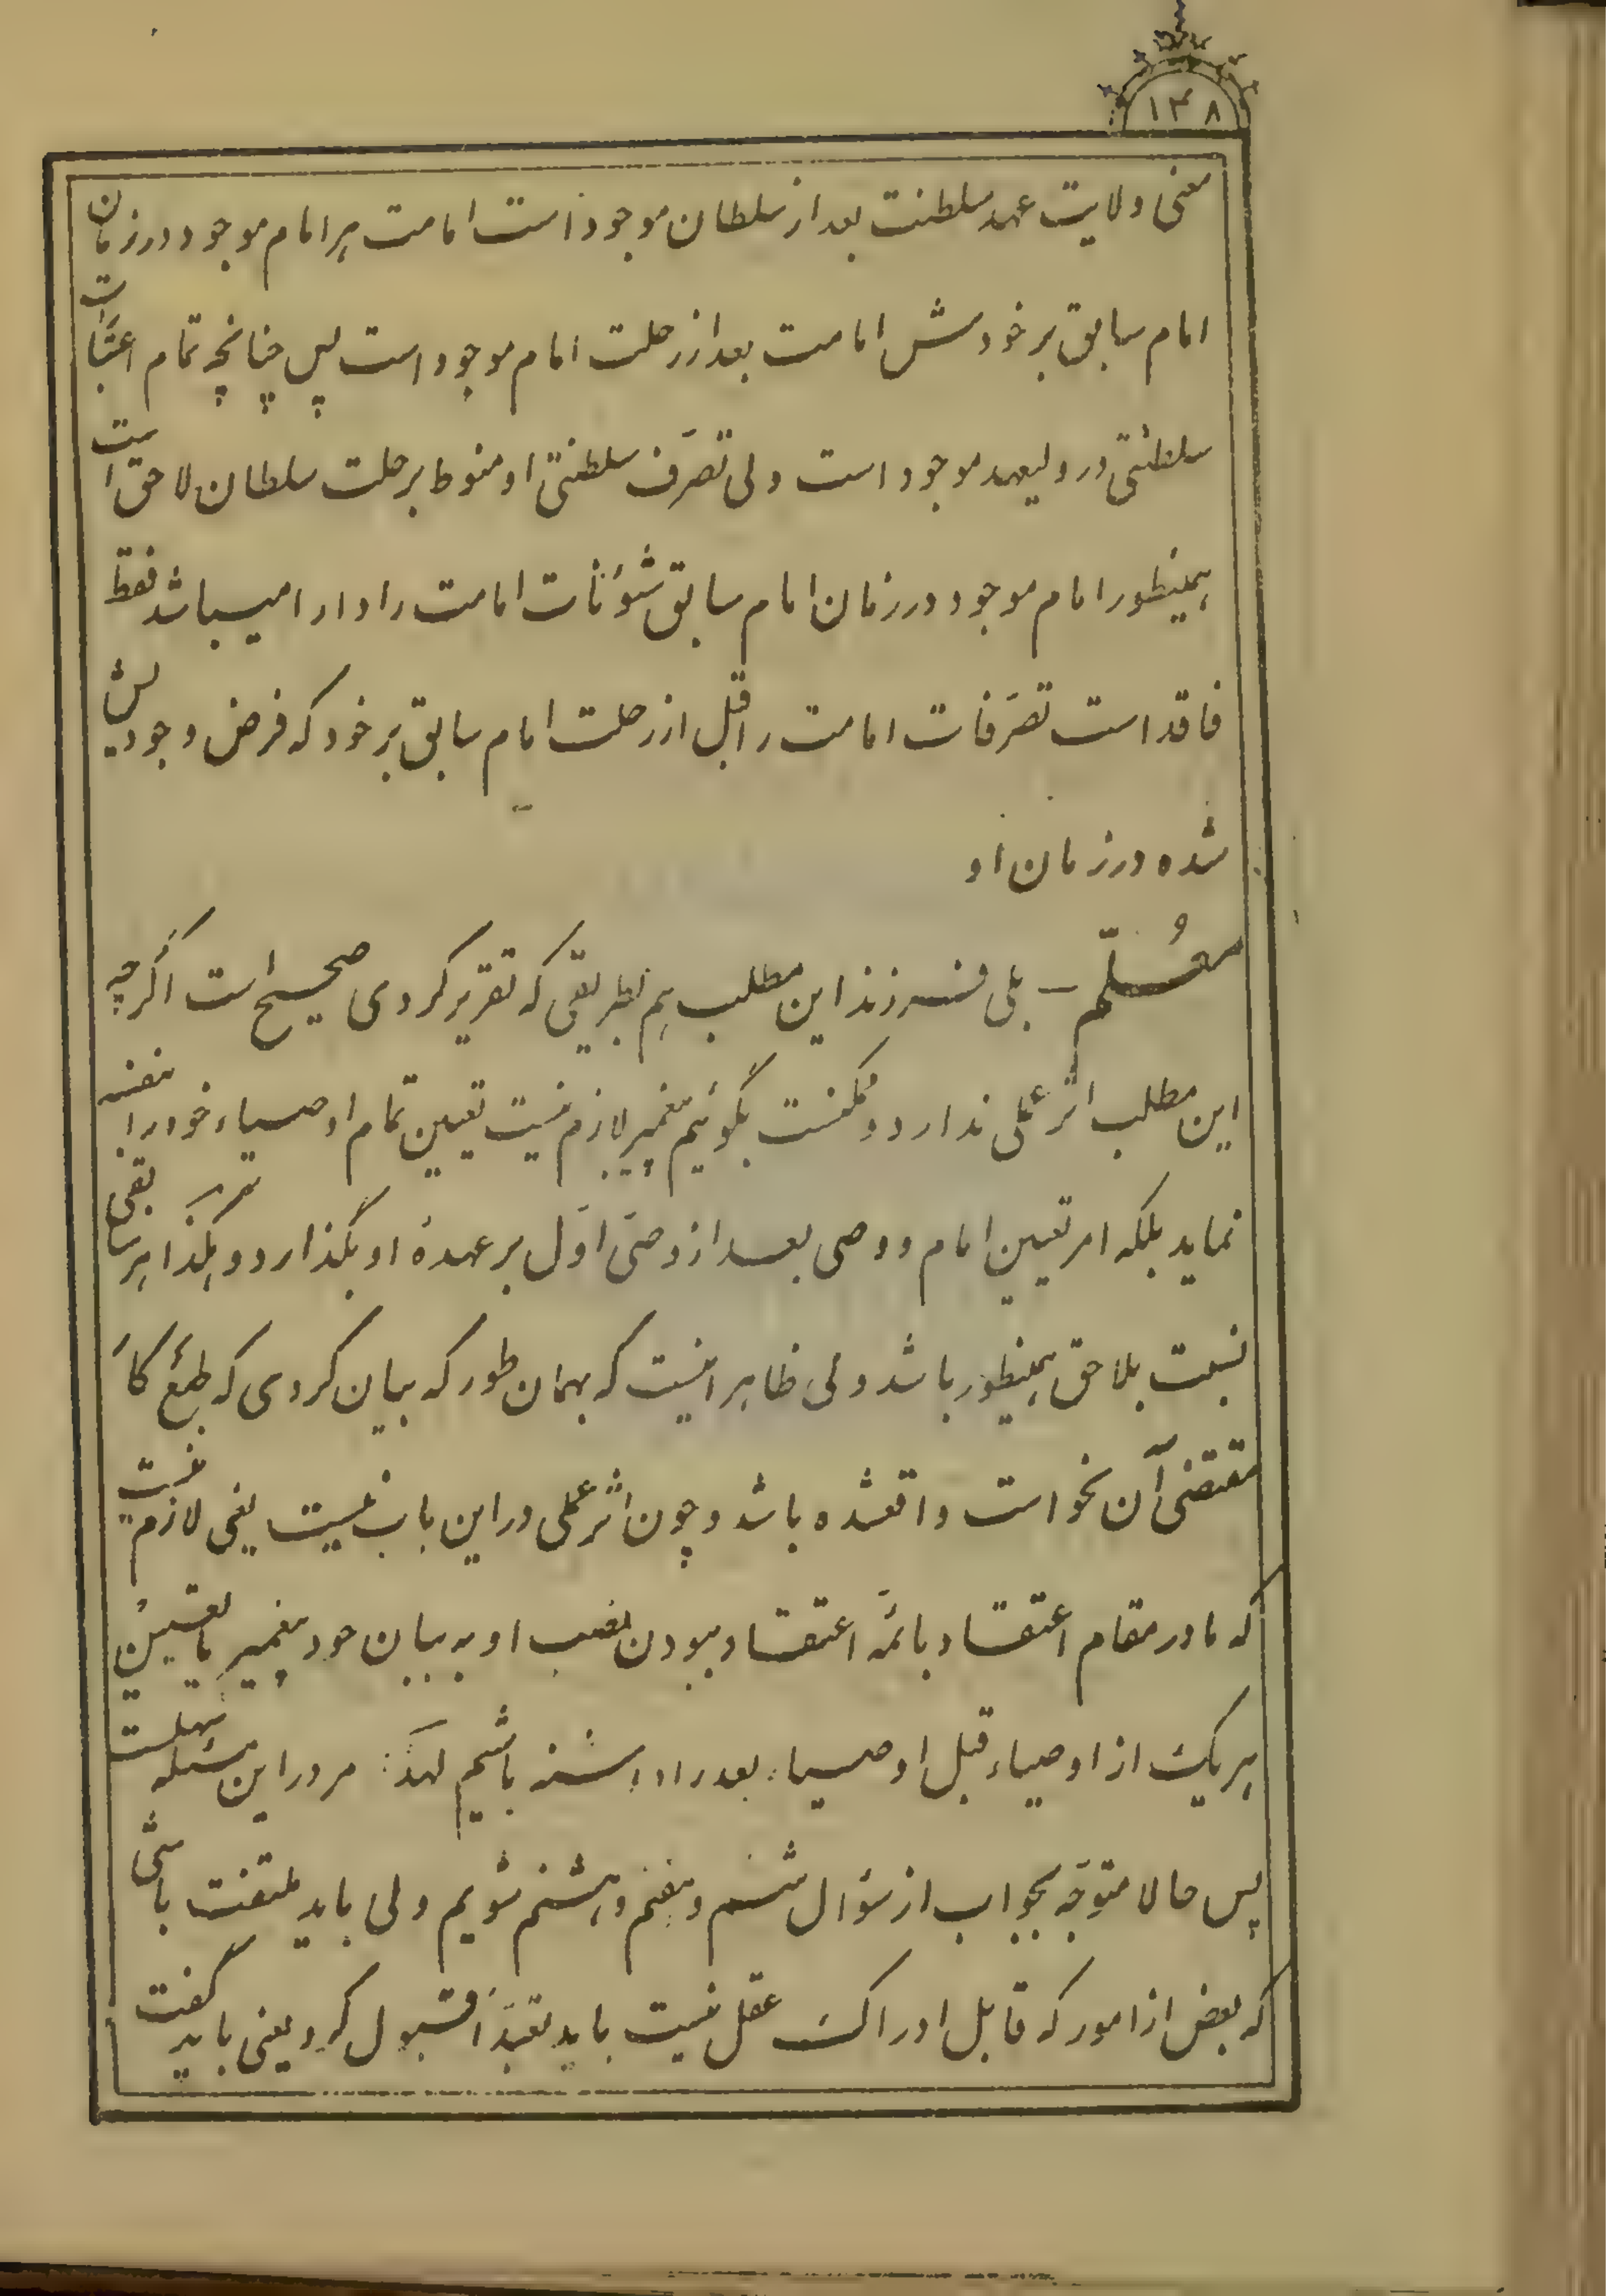 ۱۳۸
معنی ولایت عهد سلطنت بعد از سلطان موجود است امامت هر امام موجود در زمان
امام سابق بر خودش امامت بعد از رحلت امام موجود است پس چنانچه تمام اعتبارات
سلطنتی در ولیعهد موجود است ولی تصرّف سلطنتی او منوط برحلت سلطان لاحق است
همینطور امام موجود در زمان امام سابق شؤنات امامت را دارا میباشد فقط
فاقد است تصرّفات امامت را قبل از رحلت امام سابق بر خود که فرض وجودیش
شده در زمان او
معُلّم — بلی فرزند این مطلب هم بطریقی که تقریر کردی صحیح است اگرچه
این مطلب اثر عملی ندارد و ممکنست بگوئیم پیغمبر لازم نیست تعیین تمام اوصیاء خود را بنفسه
نماید بلکه امر تعیین امام و وصی بعد از وصیّ اوّل بر عهدهٔ او بگذارد و هکذا هر سابقی
نسبت بلاحق همینطور باشد ولی ظاهر اینست که بهمان طور که بیان کردی که طبع کار
مقتضی آن نحو است واقعشده باشد و چون اثر عملی در این باب نیست یعنی لازم نیست
که ما در مقام اعتقاد بائمّه اعتقاد ببودن نصب او به بیان خود پیغمبر یا تعیین
هریک از اوصیاء قبل اوصیاء بعد را داشته باشیم لهذا مرور این مسئله سهلست
پس حالا متوجّه بجواب از سؤال ششم و هفتم و هشتم شویم ولی باید ملتفت باشی
که بعض از امور که قابل ادراک عقل نیست باید تعبّداً قبول کرد یعنی باید گفت